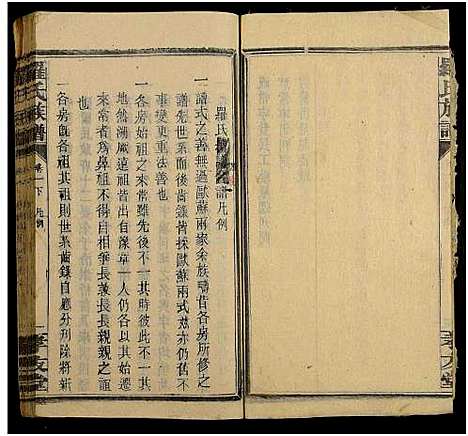 羅氏族譜
羅氏譜凡例
一譜式之善無過歐蘇兩家余族疇昔各房所修之
譜先世系而後齒錄皆採歐蘇兩式茲亦仍舊不
變更重法善也
一各房始祖之來常雖先後不一時彼此不一
地然溯厥遠祖皆出自豫章一人仍各以其
始來者為鼻祖不得自相爭長兼長長親親之誼也
一各房既各祖其祖則世系齒錄自應分列除將新
羅氏族譜
卷一下 凡例
孝友堂